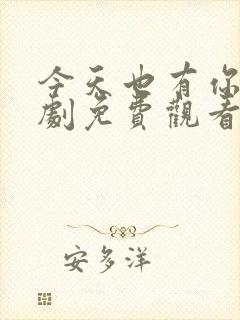 今天也有你
劇免費觀看
安多洋